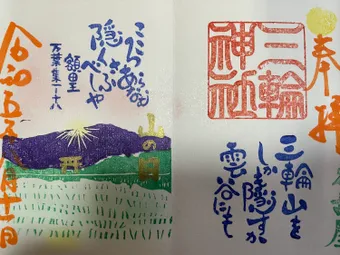 奉拝
三輪
神社
三輪山を
しかも隠すか
雲谷にも
こころあらなむ
隠くさふべしや
万葉集一十八
山の日
令和五年八月十一日